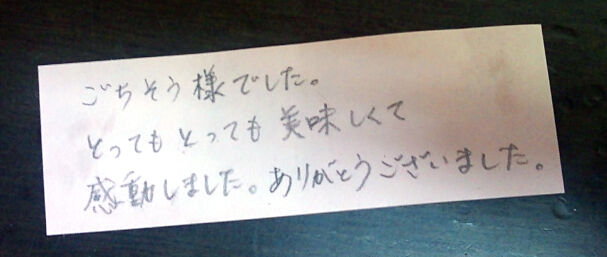 ごちそう様でした。
とってもとっても美味しくて
感動しました。ありがとうございました。